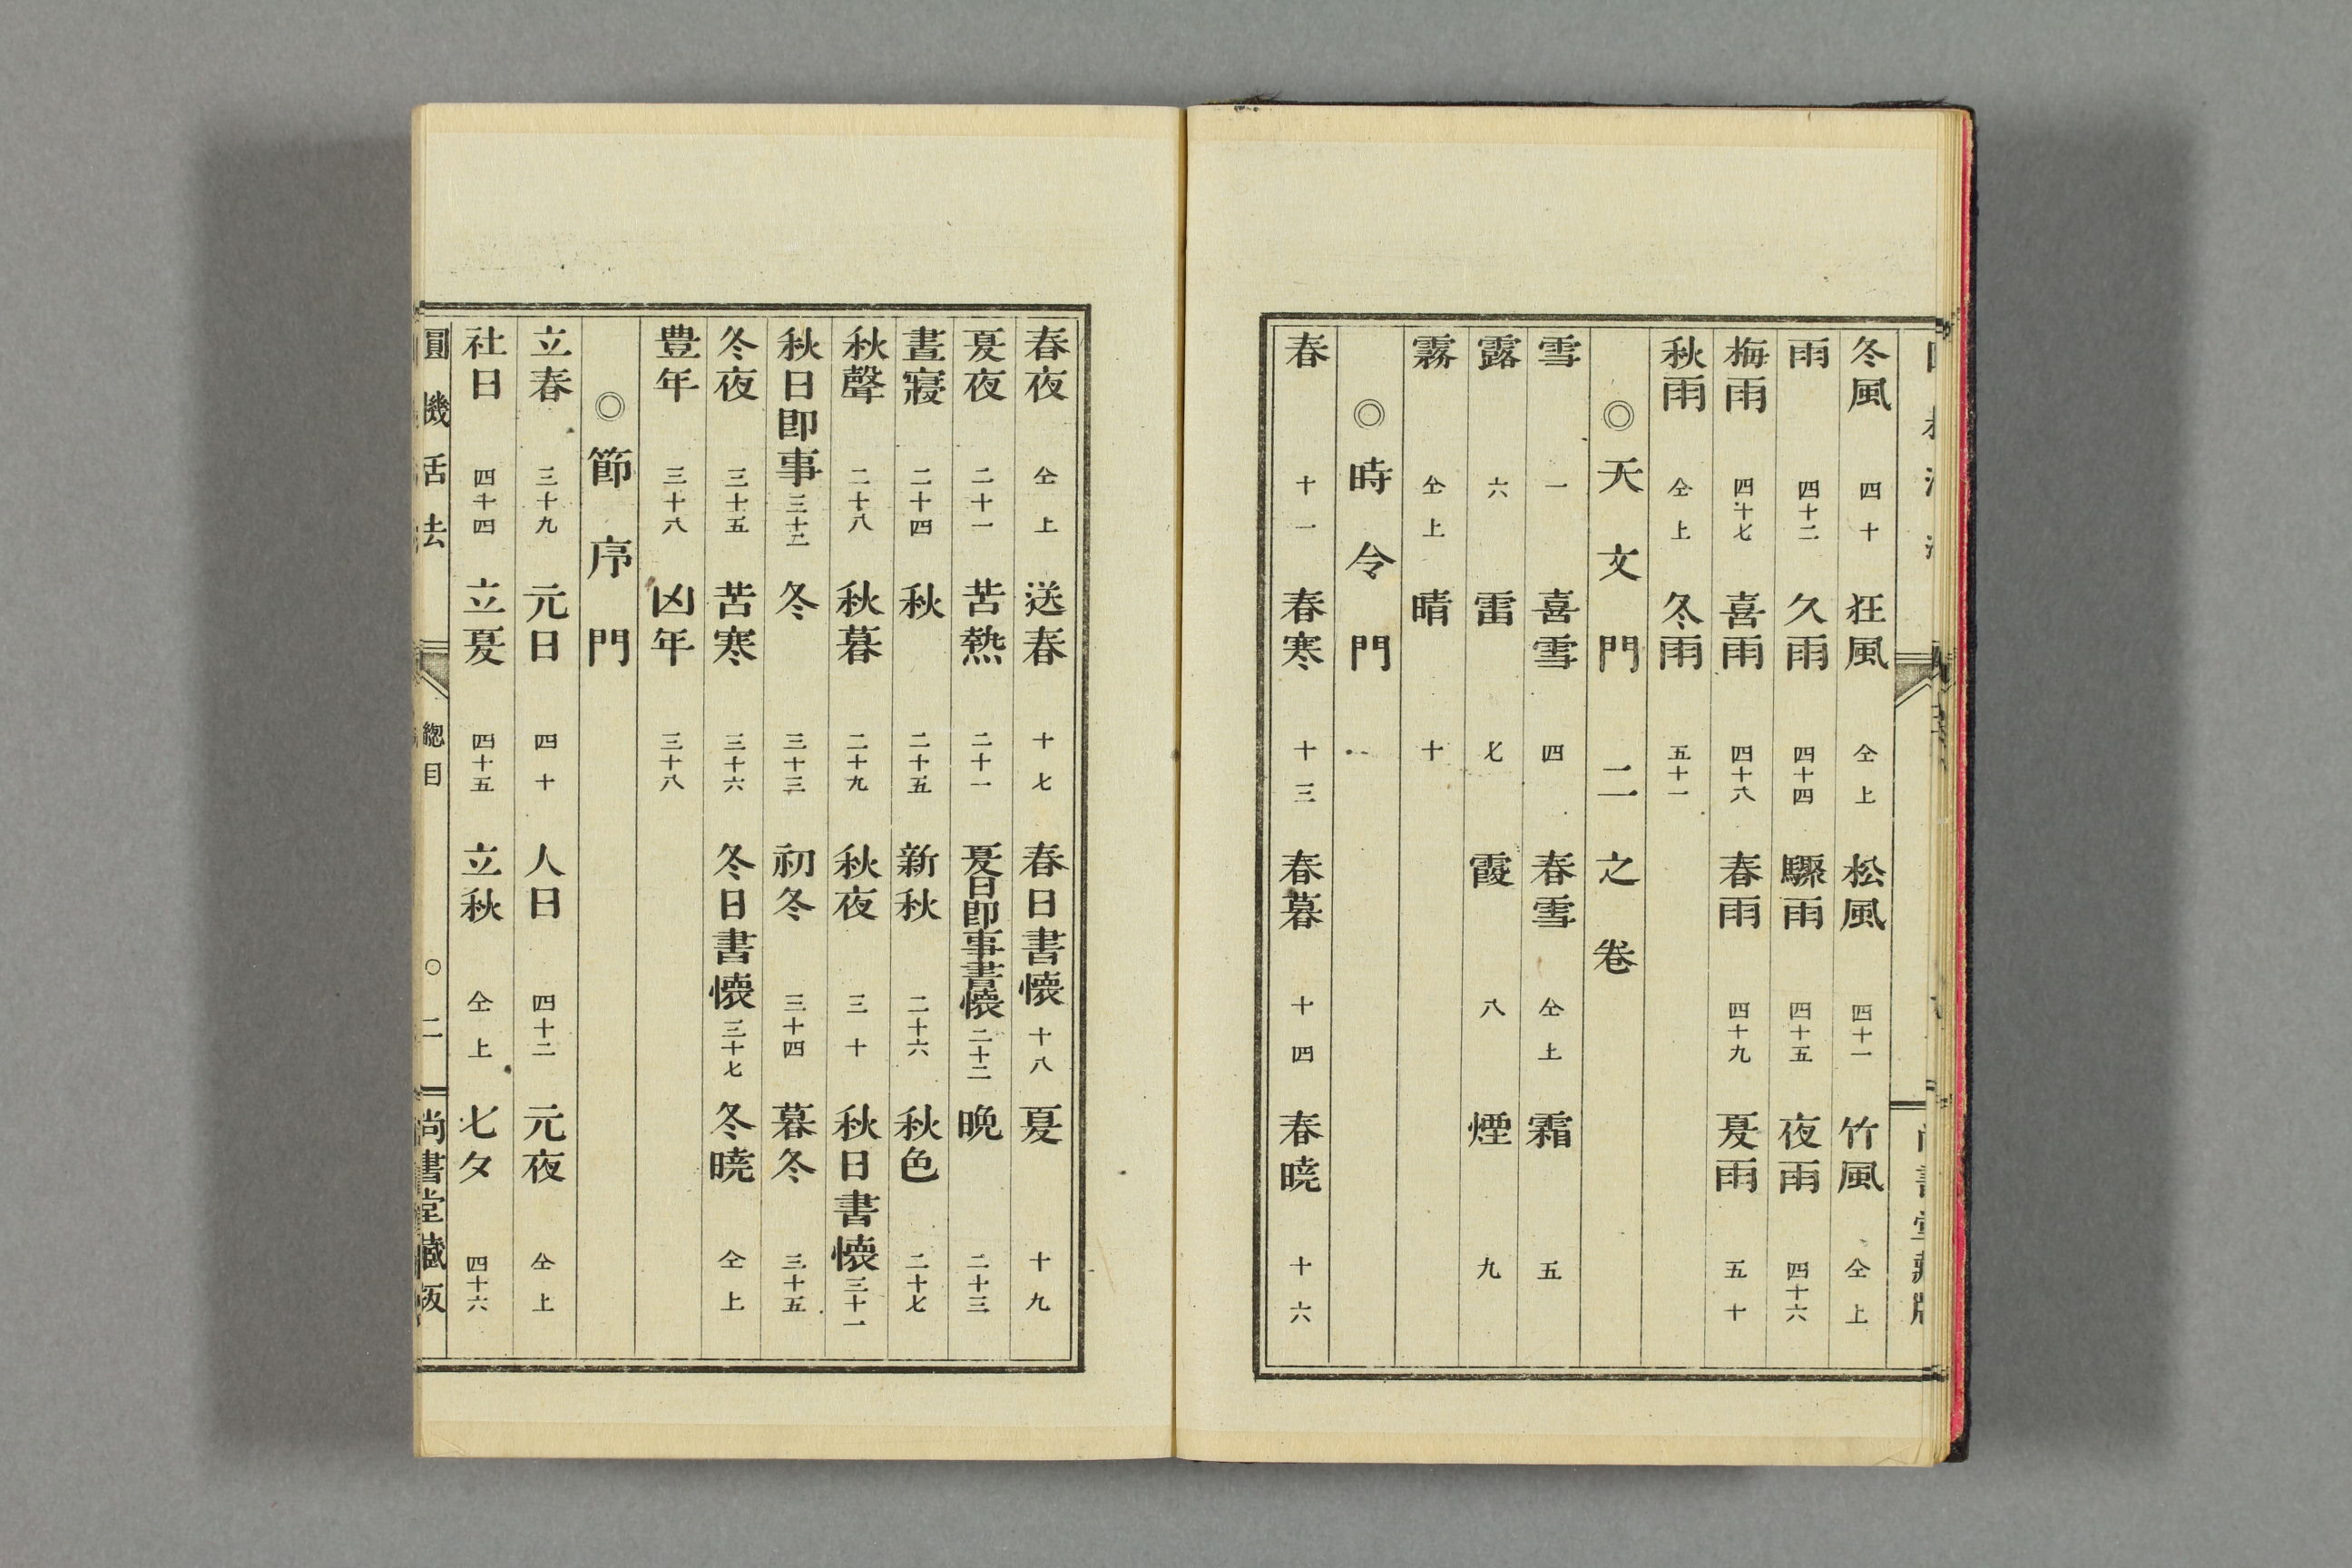 冬風 四十 狂風 仝上 松風 四十一 竹風 仝上
雨 四十二 久雨 四十四 驟雨 四十五 夜雨 四十六
梅雨 四十七 喜雨 四十八 春雨 四十九 夏雨 五十
秋雨 仝上 冬雨 五十一
◎天文門二之卷
雪 一 喜雪 四 春雪 仝上 霜 五
露 六 雷 七 霞 八 煙 九
霧 仝上 晴 十
◎時令門
春 十一 春寒 十三 春暮 十四 春曉 十六
春夜 仝上 送春 十七 春日書懷 十八 夏 十九
夏夜 二十一 苦熱 二十一 夏日卽事書懷 二十二 晩 二十三
晝寢 二十四 秋 二十五 新秋 二十六 秋色 二十七
秋聲 二十八 秋暮 二十九 秋夜 三十 秋日書懷 三十一
秋日卽事 三十二 冬 三十三 初冬 三十四 暮冬 三十五
冬夜 三十五 苦寒 三十六 冬日書懷 三十七 冬曉 仝上
豊年 三十八 凶年 三十八
◎節序門
立春 三十九 元日 四十 人日 四十二 元夜 仝上
社日 四十四 立夏 四十五 立秋 仝上 七夕 四十六
圓機活法 總目 ○ 二 尚書堂藏版